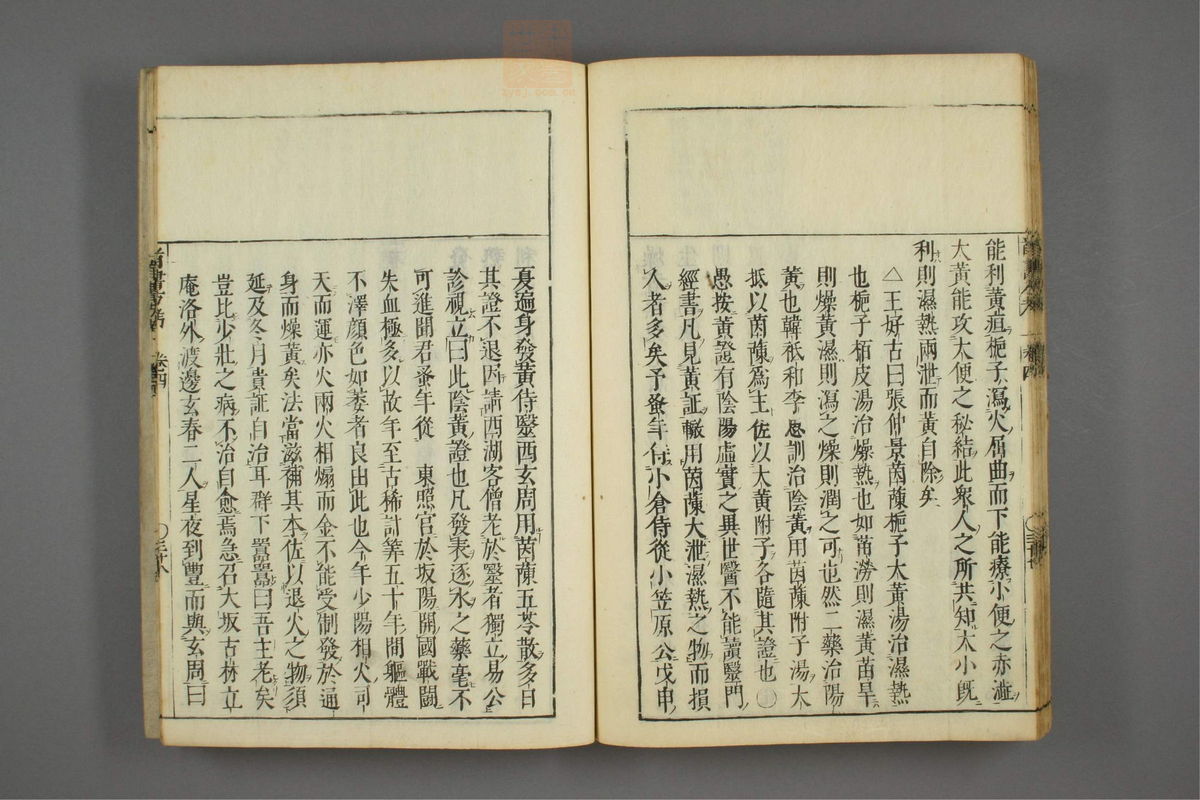 能利黃疸梔子瀉火屈曲而下能療小便之赤澁
大黃能攻大便之秘結此衆人之所共知大小既
利則濕熱兩泄而黃自除矣
△王好古曰張仲景茵蔯梔子大黃湯治濕熱
也梔子栢皮湯治燥熱也如苗澇則濕黃苗旱
則燥黃濕則瀉之燥則潤之可也然二藥治陽
黃也韓祇和李思訓治陰黃用茵蔯附子湯大
抵以茵蔯爲主佐以大黃附子各隨其證也
愚按黃證有陰陽虛實之異世醫不能讀醫門
經書凡見黃証轍用茵蔯大泄濕熱之物而損
人者多矣予蚤年仕小倉侍從小笠原公戊申
夏遍身發黃侍醫西玄周用茵蔯五苓散多日
其證不退因請西湖客僧老於醫者獨立易公
診視立曰此陰黃證也凡發表逐水之藥毫不
可進聞君蚤年從 東照官於坂陽開國戰鬪
失血極多以故年至古稀計筭五十年間軀體
不澤顔色如萎者良由此也今年少陽相火司
天而運亦火兩火相煽而金不能受制發於通
身而燥黃矣法當滋補其本佐以退火之物須
延及冬月貴証自治耳群下囂囂曰吾主老矣
豈比少壯之病不治自愈焉急召大坂古林立
庵洛外渡邊玄春二人星夜到豐而與玄周曰
卷四
卷四